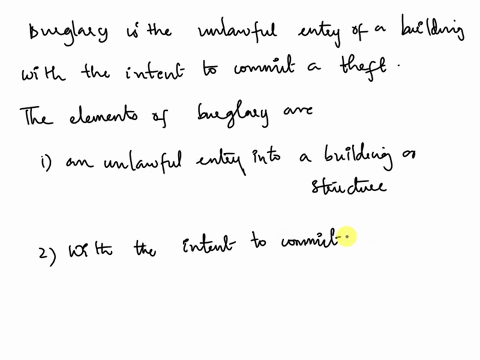 burglary is the unlawful entry of a building
with the intent to commit a theft.
The elements of burglary are
1) an unlawful entry into a building or
structure
2) With the intent to commit